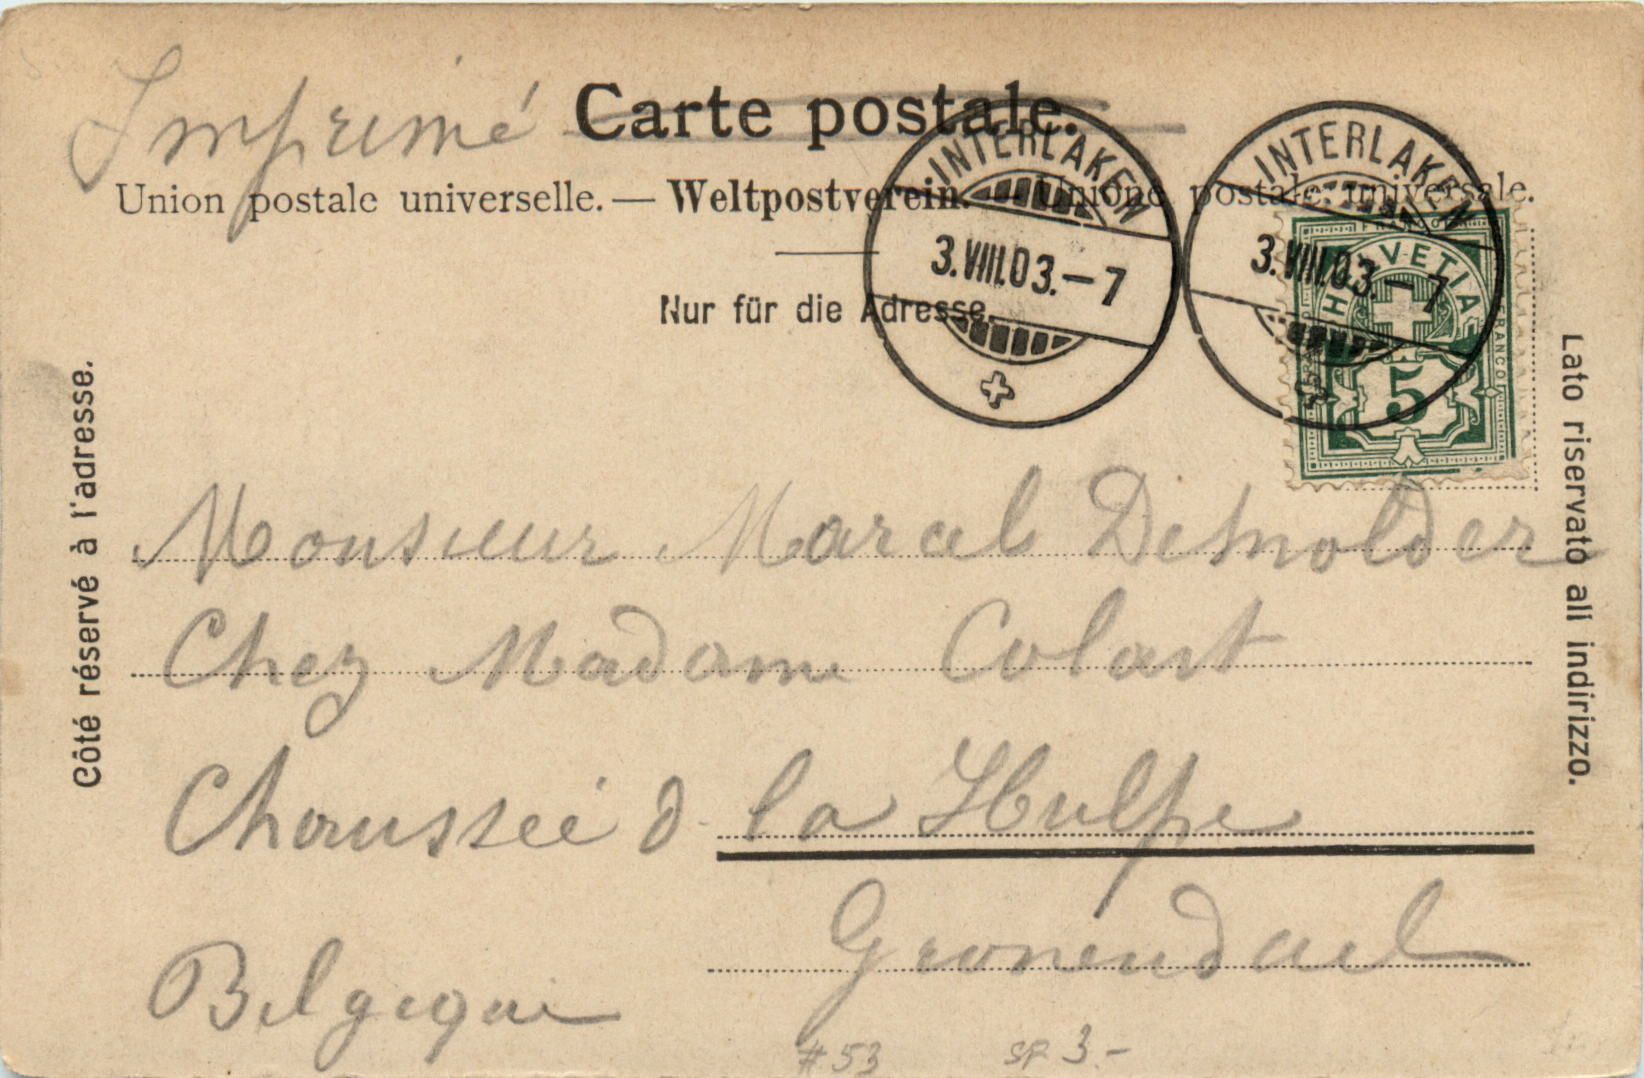 Imprimé
Carte postale.
Union postale universelle. — Weltpostverein. — Unione postale universale.
Nur für die Adresse.
INTERLAKEN
3.VIII.03.–7
INTERLAKEN
3.VIII.03.–7
FRANCO
HELVETIA
FRANCO
5
Côté réservé à l'adresse.
Lato riservato all indirizzo.
Monsieur Marcel Demolder
Chez Madame Colart
Chaussée d. la Hulpe
Gronendael
Belgique
#53
SF 3.–